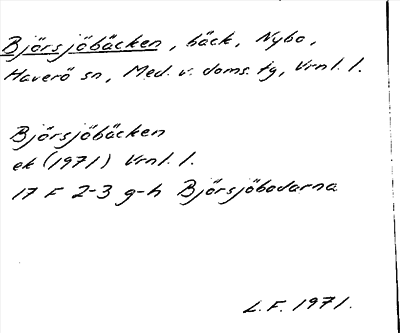 Björsjöbäcken, bäck, Nybo,
Haverö sn, Med. v. doms. tg, Vrnl. l.
Björsjöbäcken
ek (1971) Vrnl. l.
17 F 2-3 g-h Björsjöbodarna
L.F. 1971.